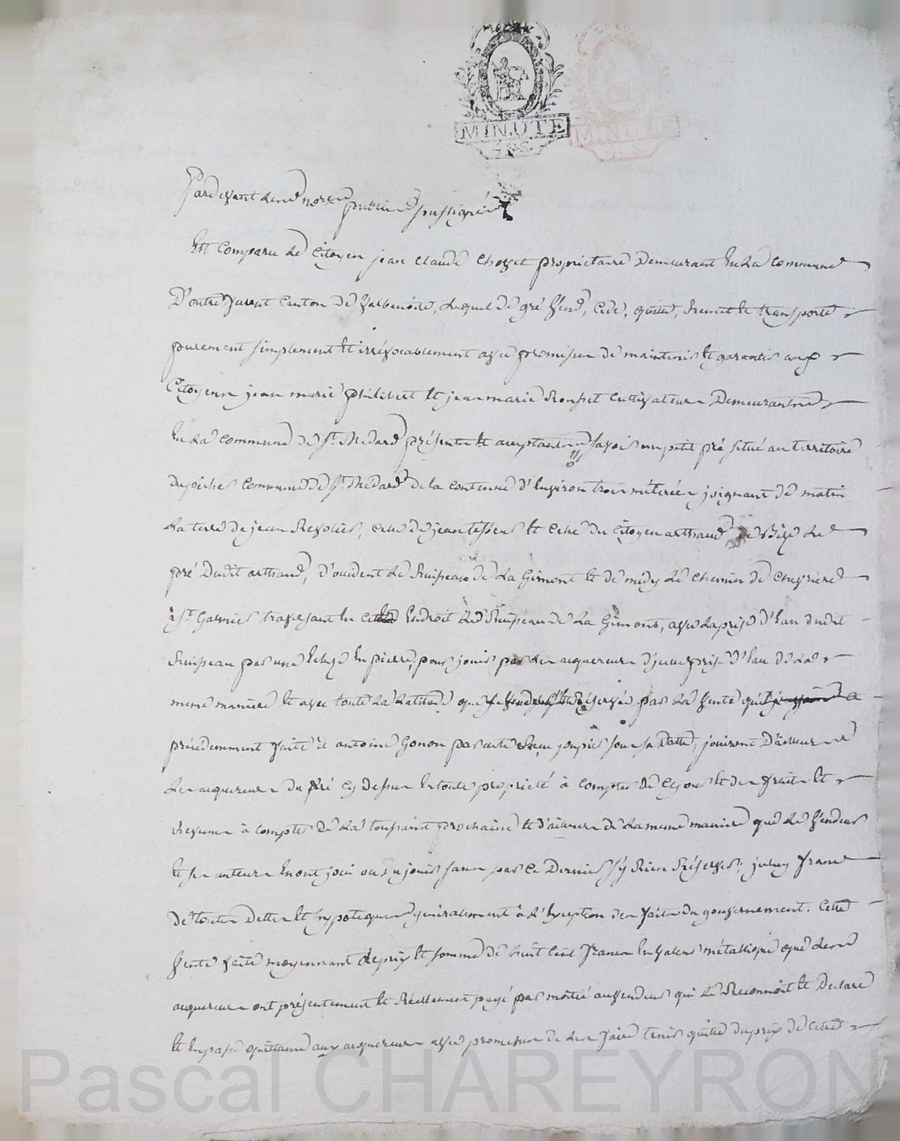 MINUTE
MINUTE
Pardevant les notaires publics soussignés
Est comparu le Citoyen jean Claude Chovet propriétaire Demeurant En La Commune
D'outre furent Canton de Valbenoite, Lequel de gré Vend, Cede, quitte, Remet et transporte
purement simplement et irrévocablement avec promesse de maintenir et garantir aux
Citoyens jean marie philibert et jean marie Cultivateurs Demeurants
En La commune de St. Medard présents et acceptants savoir un petit pré situé au territoire
Commune de St. Medard de la contenue d'Environ trois métérées joignant de matin
La terre de jean celle de jean et celle du Citoyen arthaud, de Bize Le
pré Dudit arthaud, D'occident Le Ruisseau de La Gimont et de midy Le Chemin de
à St. Galmier traversant En Endroit Le Ruisseau de La Gimont, avec La prise d'Eau dudit
Ruisseau par une En pierre, pour jouir par Les acquereurs d'jcelle prise d'Eau de La
meme maniere et avec toute La Latitude que Reservé par La Vente qu'il
précédemment faite à antoine Gonon par acte Reçu sous sa Datte, jouiront D'ailleurs
Les acquereurs du pré Cy dessus En toute propriété à compter de Ce jour et des fruits et
revenus à compter de La toussaint prochaine et d'ailleurs de La meme maniere que Le Vendeur
et ses auteurs En ont joui ou du jouir sans par Ce Dernier s'y Rien Réserver, jceluy franc
de toutes Dettes et hypoteques généralement à L'Exception des faits du gouvernement. Cette
Vente faite moyennant Le prix et somme de huit Cent francs En Valeur métallique que Les
acquereurs ont présentement et Réellement payé par moitié au vendeur qui Le Reconnoit et Declare
et En passe quittance aux acquereurs avec promesse de Les faire tenir quitte du prix de Cette
Pascal CHAREYRON